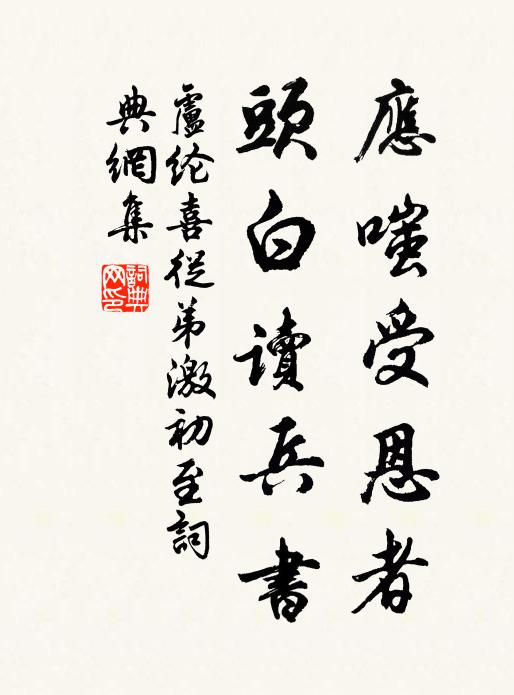 應嗤受恩者
頭白讀兵書
盧纶喜從弟激初至詞
典網集
詞典网印